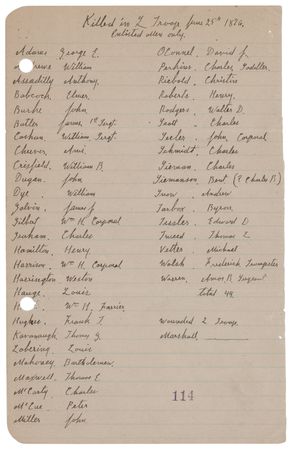 Killed in L Troop June 25th 1876.
Enlisted Men only.
Adams George E.
William
Assadilly Anthony
Babcock Elmer
Burke John
Butler James 1st Sergt.
Cashan William Sergt.
Cheever Ami.
Crisfield William B.
Dugan John
Dye William
Galvin James J
Gilbert Wm H. Corporal
Graham Charles
Hamilton Henry
Harrison Wm H. Corporal
Harrington Weston
Hauge Louis
Wm H. Farrier
Hughes Frank T.
Kavanaugh Thomas G.
Lobering Louis
Mahoney Bartholomew
Maxwell Thomas E
McCarty Charles
McCue Peter
Miller John
OConnel David J.
Perkins Charles Saddller.
Riebold Christian
Roberts Henry.
Rodgers Walter B.
Scott Charles
Seeler John Corporal
Schmidt Charles
Siemon Charles
Siemonson Bent (? Charles B.)
Snow Andrew
Tarbox Byron
Tessler Edward D
Tweed Thomas L
Vetter Michael
Walsh Frederick Trumpeter
Warren Amos B. Sergeant
Total 44
Wounded L Troop
Marshall
114